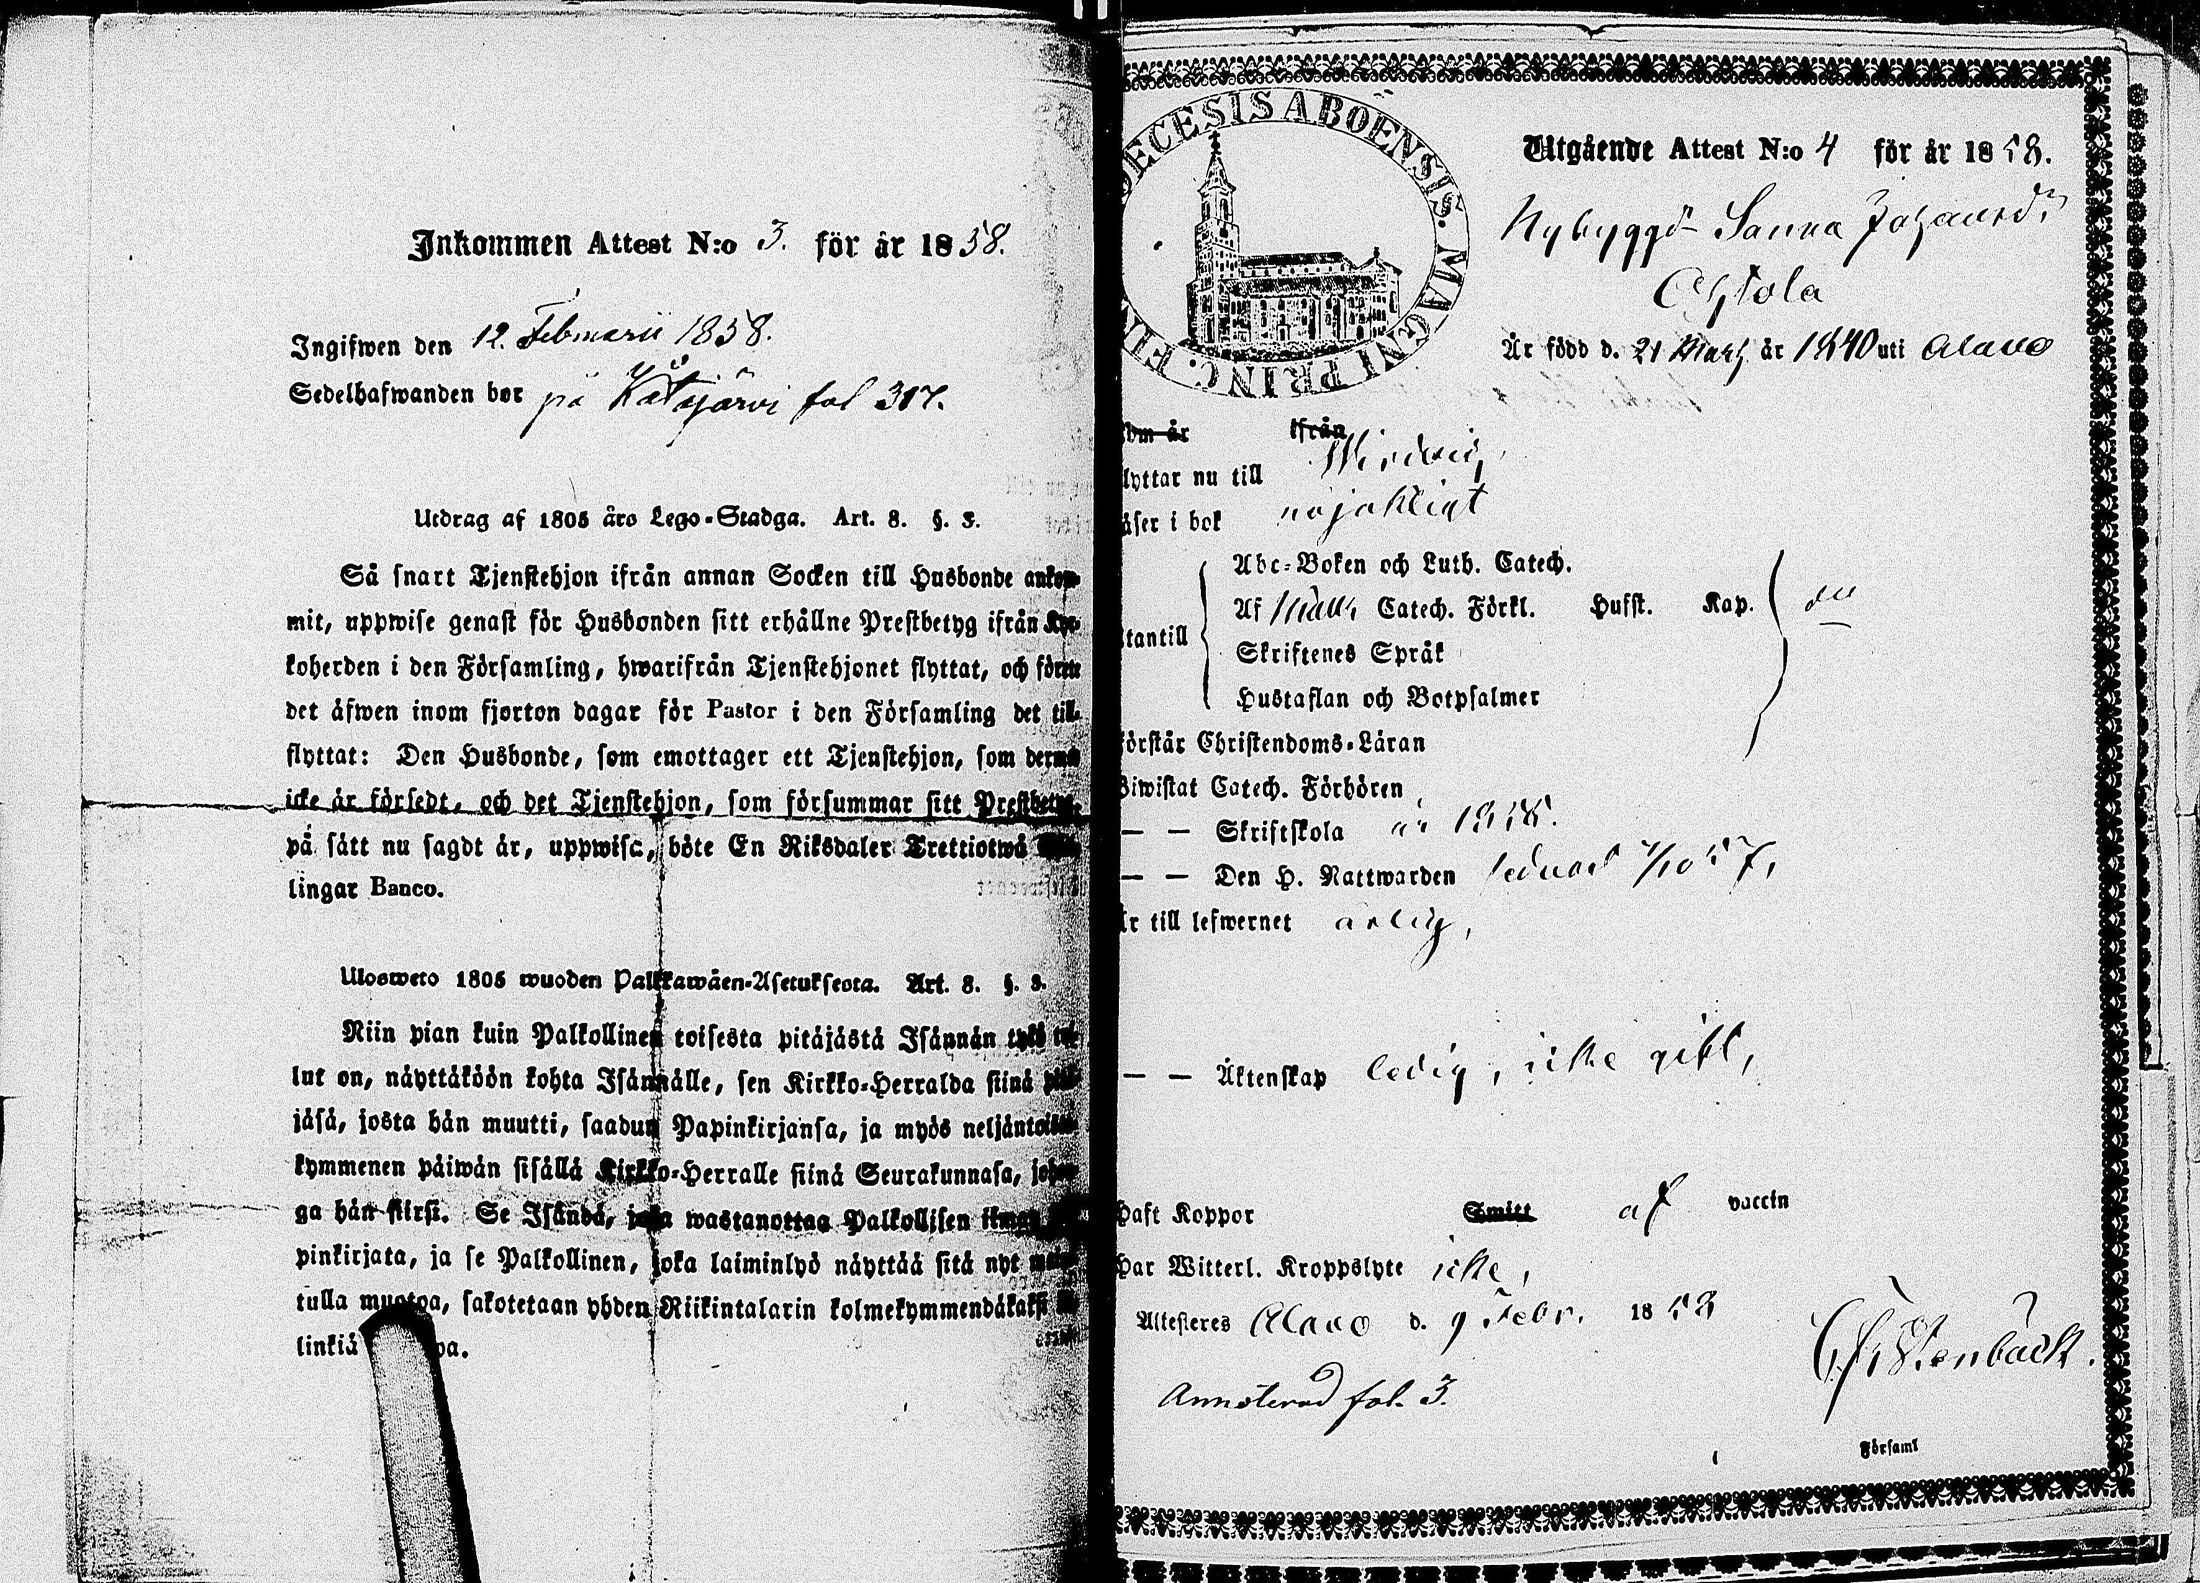 Inkommen Attest N:o 3. för år 1858.
Ingifwen den 12 Februarii 1858.
Sedelhafwanden bor på Kätkäjärvi fol 317.
Utdrag af 1805 års Lego-Stadga. Art. 8. §. 3.
Så snart Tjenstehjon ifrån annan Socken till Husbonde ankom-
mit, uppwise genast för Husbonden sitt erhållne Prestbetyg ifrån Kyr-
koherden i den Församling, hwarifrån Tjenstehjonet flyttat, och förete
det äfwen inom fjorton dagar för Pastor i den Församling det till-
flyttat: Den Husbonde, som emottager ett Tjenstehjon, som dermed
icke är försedt, och det Tjenstehjon, som försummar sitt Prestbetyg,
på sätt nu sagdt är, uppwisa, böte En Riksdaler Trettiotwå
lingar Banco.
Ulosweto 1805 wuoden Palkkawäen-Asetuksesta. Art. 8. §. 3.
Niin pian kuin Palkollinen toisesta pitäjästä Isännän tykö tul-
lut on, näyttäköön kohta Isännälle, sen Kirkko-Herralda siinä pitä-
jäsä, josta hän muutti, saadun Papinkirjansa, ja myös neljäntoista-
kymmenen päiwän sisällä Kirkko-Herralle siinä Seurakunnasa, johon-
ga hän siirsi. Se Isändä, joka wastanottaa Palkollisen ilman
pinkirjata, ja se Palkollinen, joka laiminlyö näyttää sitä nyt
tulla muotoa, sakotetaan yhden Riikintalarin kolmekymmendäkaksi
linkiä
DIOECESIS ABOENSIS. MAGNI PRINC. FIN
Utgående Attest N:o 4 för år 1858.
Nybygg. Sanna Johansd:r
Ahlola
Är född d. 21 Mars år 1840 uti Alavo
om år ifrån
lyttar nu till Wirdois,
äser i bok nöjaktigt
tantill
Abc-Boken och Luth. Catech.
Af Catech. Förkl. Husst. Kap.
Skriftenes Språk
Hustaflan och Botpsalmer
örstår Christendoms-Läran
Biwistat Catech. Förhören
— — Skriftskola år
— — Den H. Nattwarden sednast 7/10 57,
Är till lefwernet ärlig,
— — Äktenskap ledig, icke gift,
Haft Koppor Smitt af vaccin
Har Witterl. Kroppslyte icke,
Attesteres Alavo d. 9 Febr. 1858
Stenbäck.
Annoterad fol. 3.
Församl